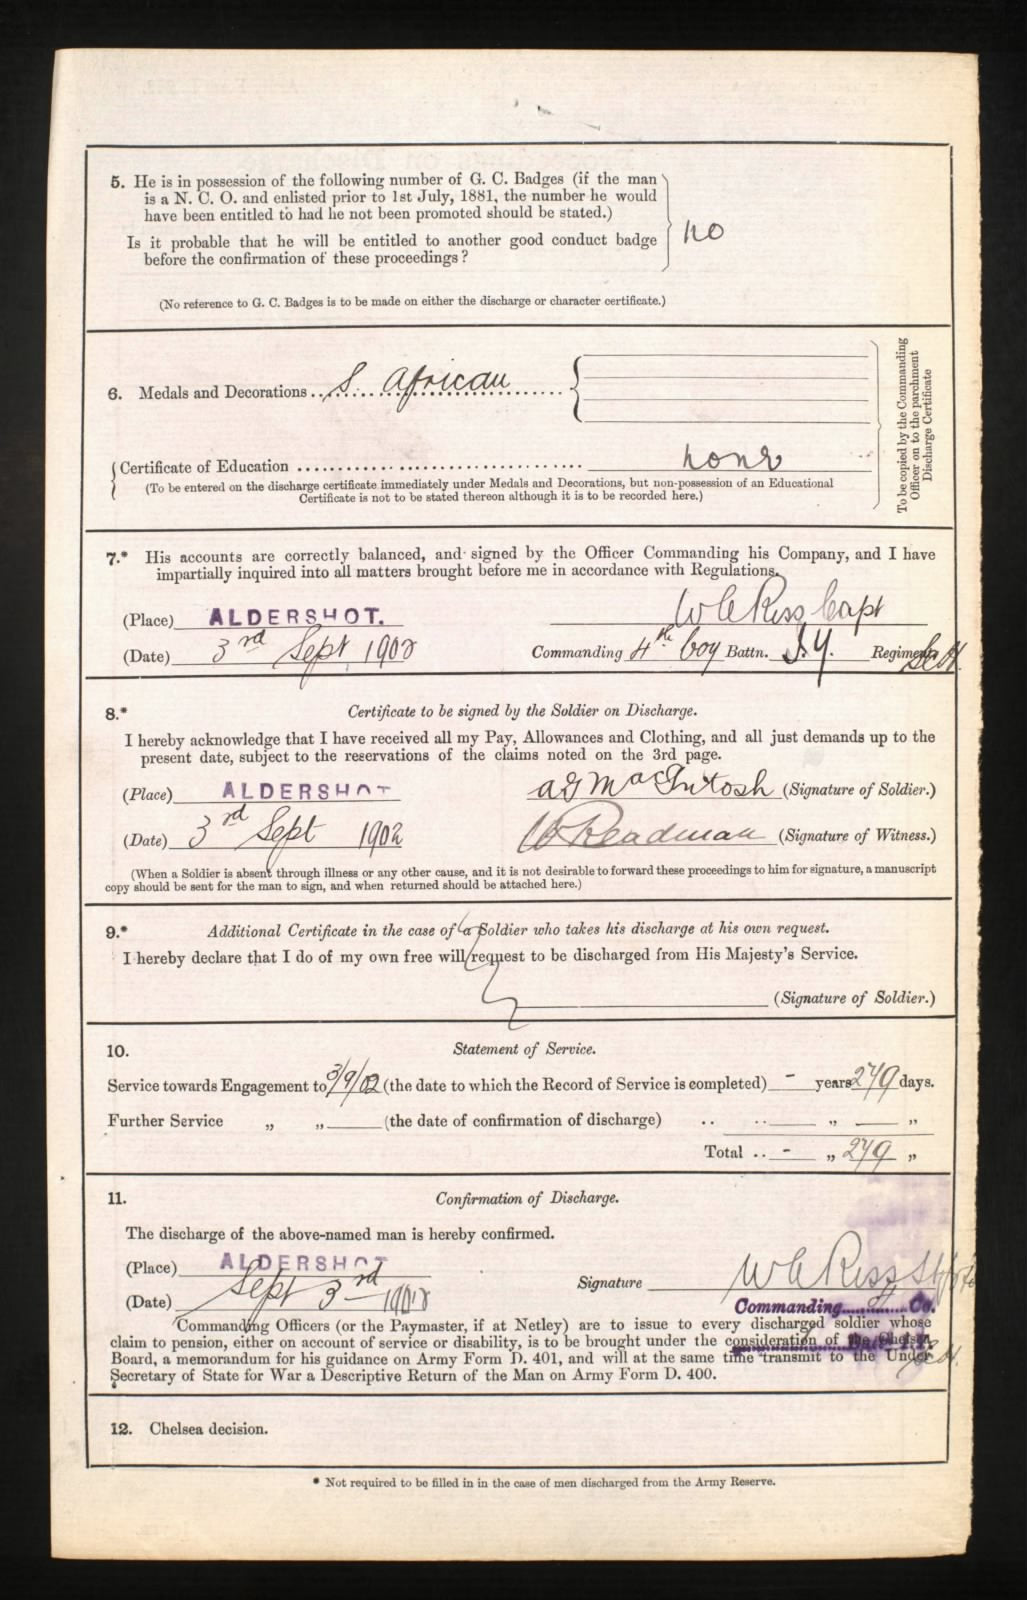 5. He is in possession of the following number of G. C. Badges (if the man
is a N. C. O. and enlisted prior to 1st July, 1881, the number he would
have been entitled to had he not been promoted should be stated.)
Is it probable that he will be entitled to another good conduct badge
before the confirmation of these proceedings?
no
(No reference to G. C. Badges is to be made on either the discharge or character certificate.)
6. Medals and Decorations S. African
Certificate of Education none
(To be entered on the discharge certificate immediately under Medals and Decorations, but non-possession of an Educational
Certificate is not to be stated thereon although it is to be recorded here.)
To be copied by the Commanding
Officer on to the parchment
Discharge Certificate
7.* His accounts are correctly balanced, and signed by the Officer Commanding his Company, and I have
impartially inquired into all matters brought before me in accordance with Regulations.
(Place) ALDERSHOT. Capt
(Date) 3rd Sept 1902 Commanding 4th Coy Battn. I.Y. Regiment
8.* Certificate to be signed by the Soldier on Discharge.
I hereby acknowledge that I have received all my Pay, Allowances and Clothing, and all just demands up to the
present date, subject to the reservations of the claims noted on the 3rd page.
(Place) ALDERSHOT AG MacIntosh (Signature of Soldier.)
(Date) 3rd Sept 1902 Readman (Signature of Witness.)
(When a Soldier is absent through illness or any other cause, and it is not desirable to forward these proceedings to him for signature, a manuscript
copy should be sent for the man to sign, and when returned should be attached here.)
9.* Additional Certificate in the case of a Soldier who takes his discharge at his own request.
I hereby declare that I do of my own free will request to be discharged from His Majesty's Service.
(Signature of Soldier.)
10. Statement of Service.
Service towards Engagement to 3/9/02 (the date to which the Record of Service is completed) - years 279 days.
Further Service „ „ (the date of confirmation of discharge) .. .. „ „
Total .. - „ 279 „
11. Confirmation of Discharge.
The discharge of the above-named man is hereby confirmed.
(Place) ALDERSHOT
Signature
(Date) Sept 3rd 1902
Commanding Co.
Commanding Officers (or the Paymaster, if at Netley) are to issue to every discharged soldier whose
claim to pension, either on account of service or disability, is to be brought under the consideration of the Chelsea
Board, a memorandum for his guidance on Army Form D. 401, and will at the same time transmit to the Under
Secretary of State for War a Descriptive Return of the Man on Army Form D. 400.
12. Chelsea decision.
* Not required to be filled in in the case of men discharged from the Army Reserve.